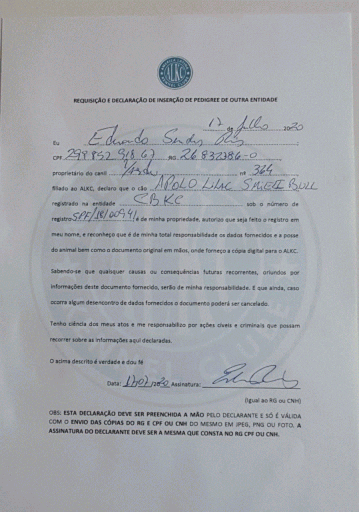 ALKC
REQUISIÇÃO E DECLARAÇÃO DE INSERÇÃO DE PEDIGREE DE OUTRA ENTIDADE
17 de Julho 2020
Eu Eduardo
CPF RG: 26 832786-0
proprietário do canil nº 364
filiado ao ALKC, declaro que o cão APOLO LILAC STREET BULL
registrado na entidade CBKC sob o número de
registro é de minha propriedade, autorizo que seja feito o registro em
meu nome, e reconheço que é de minha total responsabilidade os dados fornecidos e a posse
do animal bem como o documento original em mãos, onde forneço a cópia digital para o ALKC.
Sabendo-se que quaisquer causas ou consequências futuras recorrentes, oriundos por
informações deste documento fornecido, serão de minha responsabilidade. E que ainda, caso
ocorra algum desencontro de dados fornecidos o documento poderá ser cancelado.
Tenho ciência dos meus atos e me responsabilizo por ações cíveis e criminais que possam
recorrer sobre as informações aqui declaradas.
O acima descrito é verdade e dou fé
Data: Assinatura:
(Igual ao RG ou CNH)
OBS: ESTA DECLARAÇÃO DEVE SER PREENCHIDA A MÃO PELO DECLARANTE E SÓ É VÁLIDA
COM O ENVIO DAS CÓPIAS DO RG E CPF OU CNH DO MESMO EM JPEG, PNG OU FOTO. A
ASSINATURA DO DECLARANTE DEVE SER A MESMA QUE CONSTA NO RG CPF OU CNH.